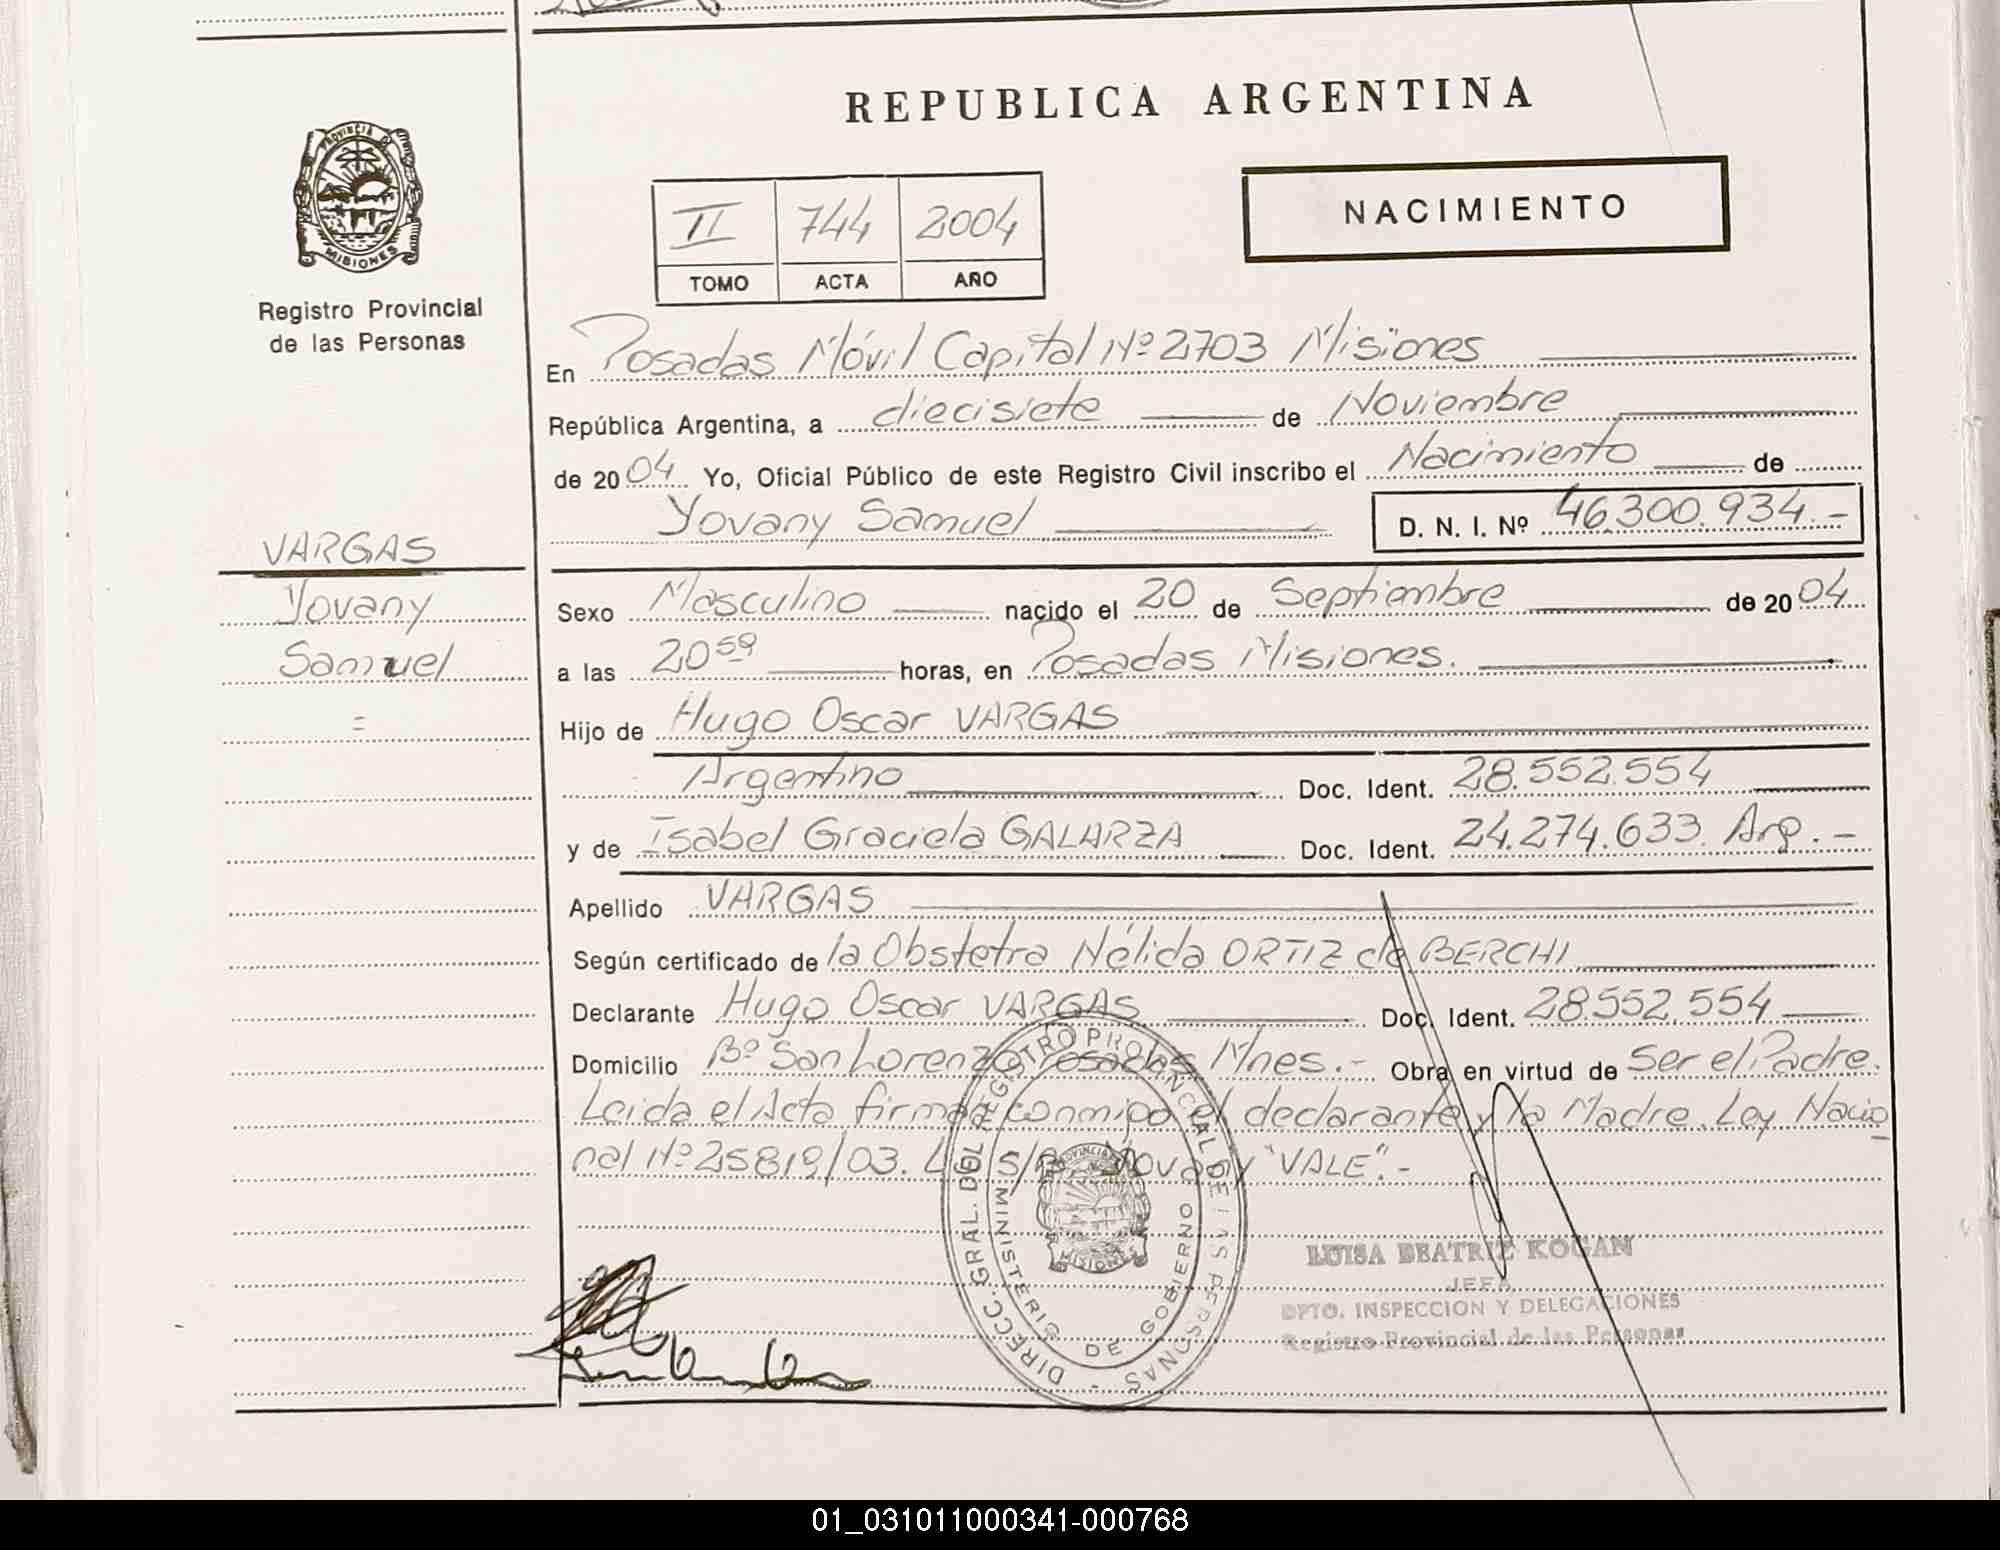 REPUBLICA ARGENTINA
PROVINCIA DE
MISIONES
Registro Provincial
de las Personas
II 744 2004
TOMO ACTA AÑO
NACIMIENTO
En Posadas Móvil Capital Nº 2703 Misiones
República Argentina, a diecisiete de Noviembre
de 2004 Yo, Oficial Público de este Registro Civil inscribo el Nacimiento de
Yovany Samuel D. N. I. Nº 46.300.934.-
VARGAS
Yovany
Samuel
=
Sexo Masculino nacido el 20 de Septiembre de 2004
a las 20 59 horas, en Posadas Misiones.
Hijo de Hugo Oscar VARGAS
Argentino Doc. Ident. 28.552.554
y de Isabel Graciela GALARZA Doc. Ident. 24.274.633. Arg.-
Apellido VARGAS
Según certificado de la Obstetra Nélida ORTIZ de BERCHI
Declarante Hugo Oscar VARGAS Doc. Ident. 28.552.554
Domicilio Bº San Lorenzo Posadas Mnes.- Obra en virtud de Ser el Padre.
Leida el Acta firman conmigo el declarante y la Madre. Ley Nacio
nal Nº 25819/03. S/R Yovany "VALE".-
DIRECC. GRAL. DEL REGISTRO PROVINCIAL DE LAS PERSONAS -
MINISTERIO DE GOBIERNO
PROVINCIA
MISIONES
LUISA BEATRIZ KOGAN
JEFA
DPTO. INSPECCION Y DELEGACIONES
Registro Provincial de las Personas
01_031011000341-000768